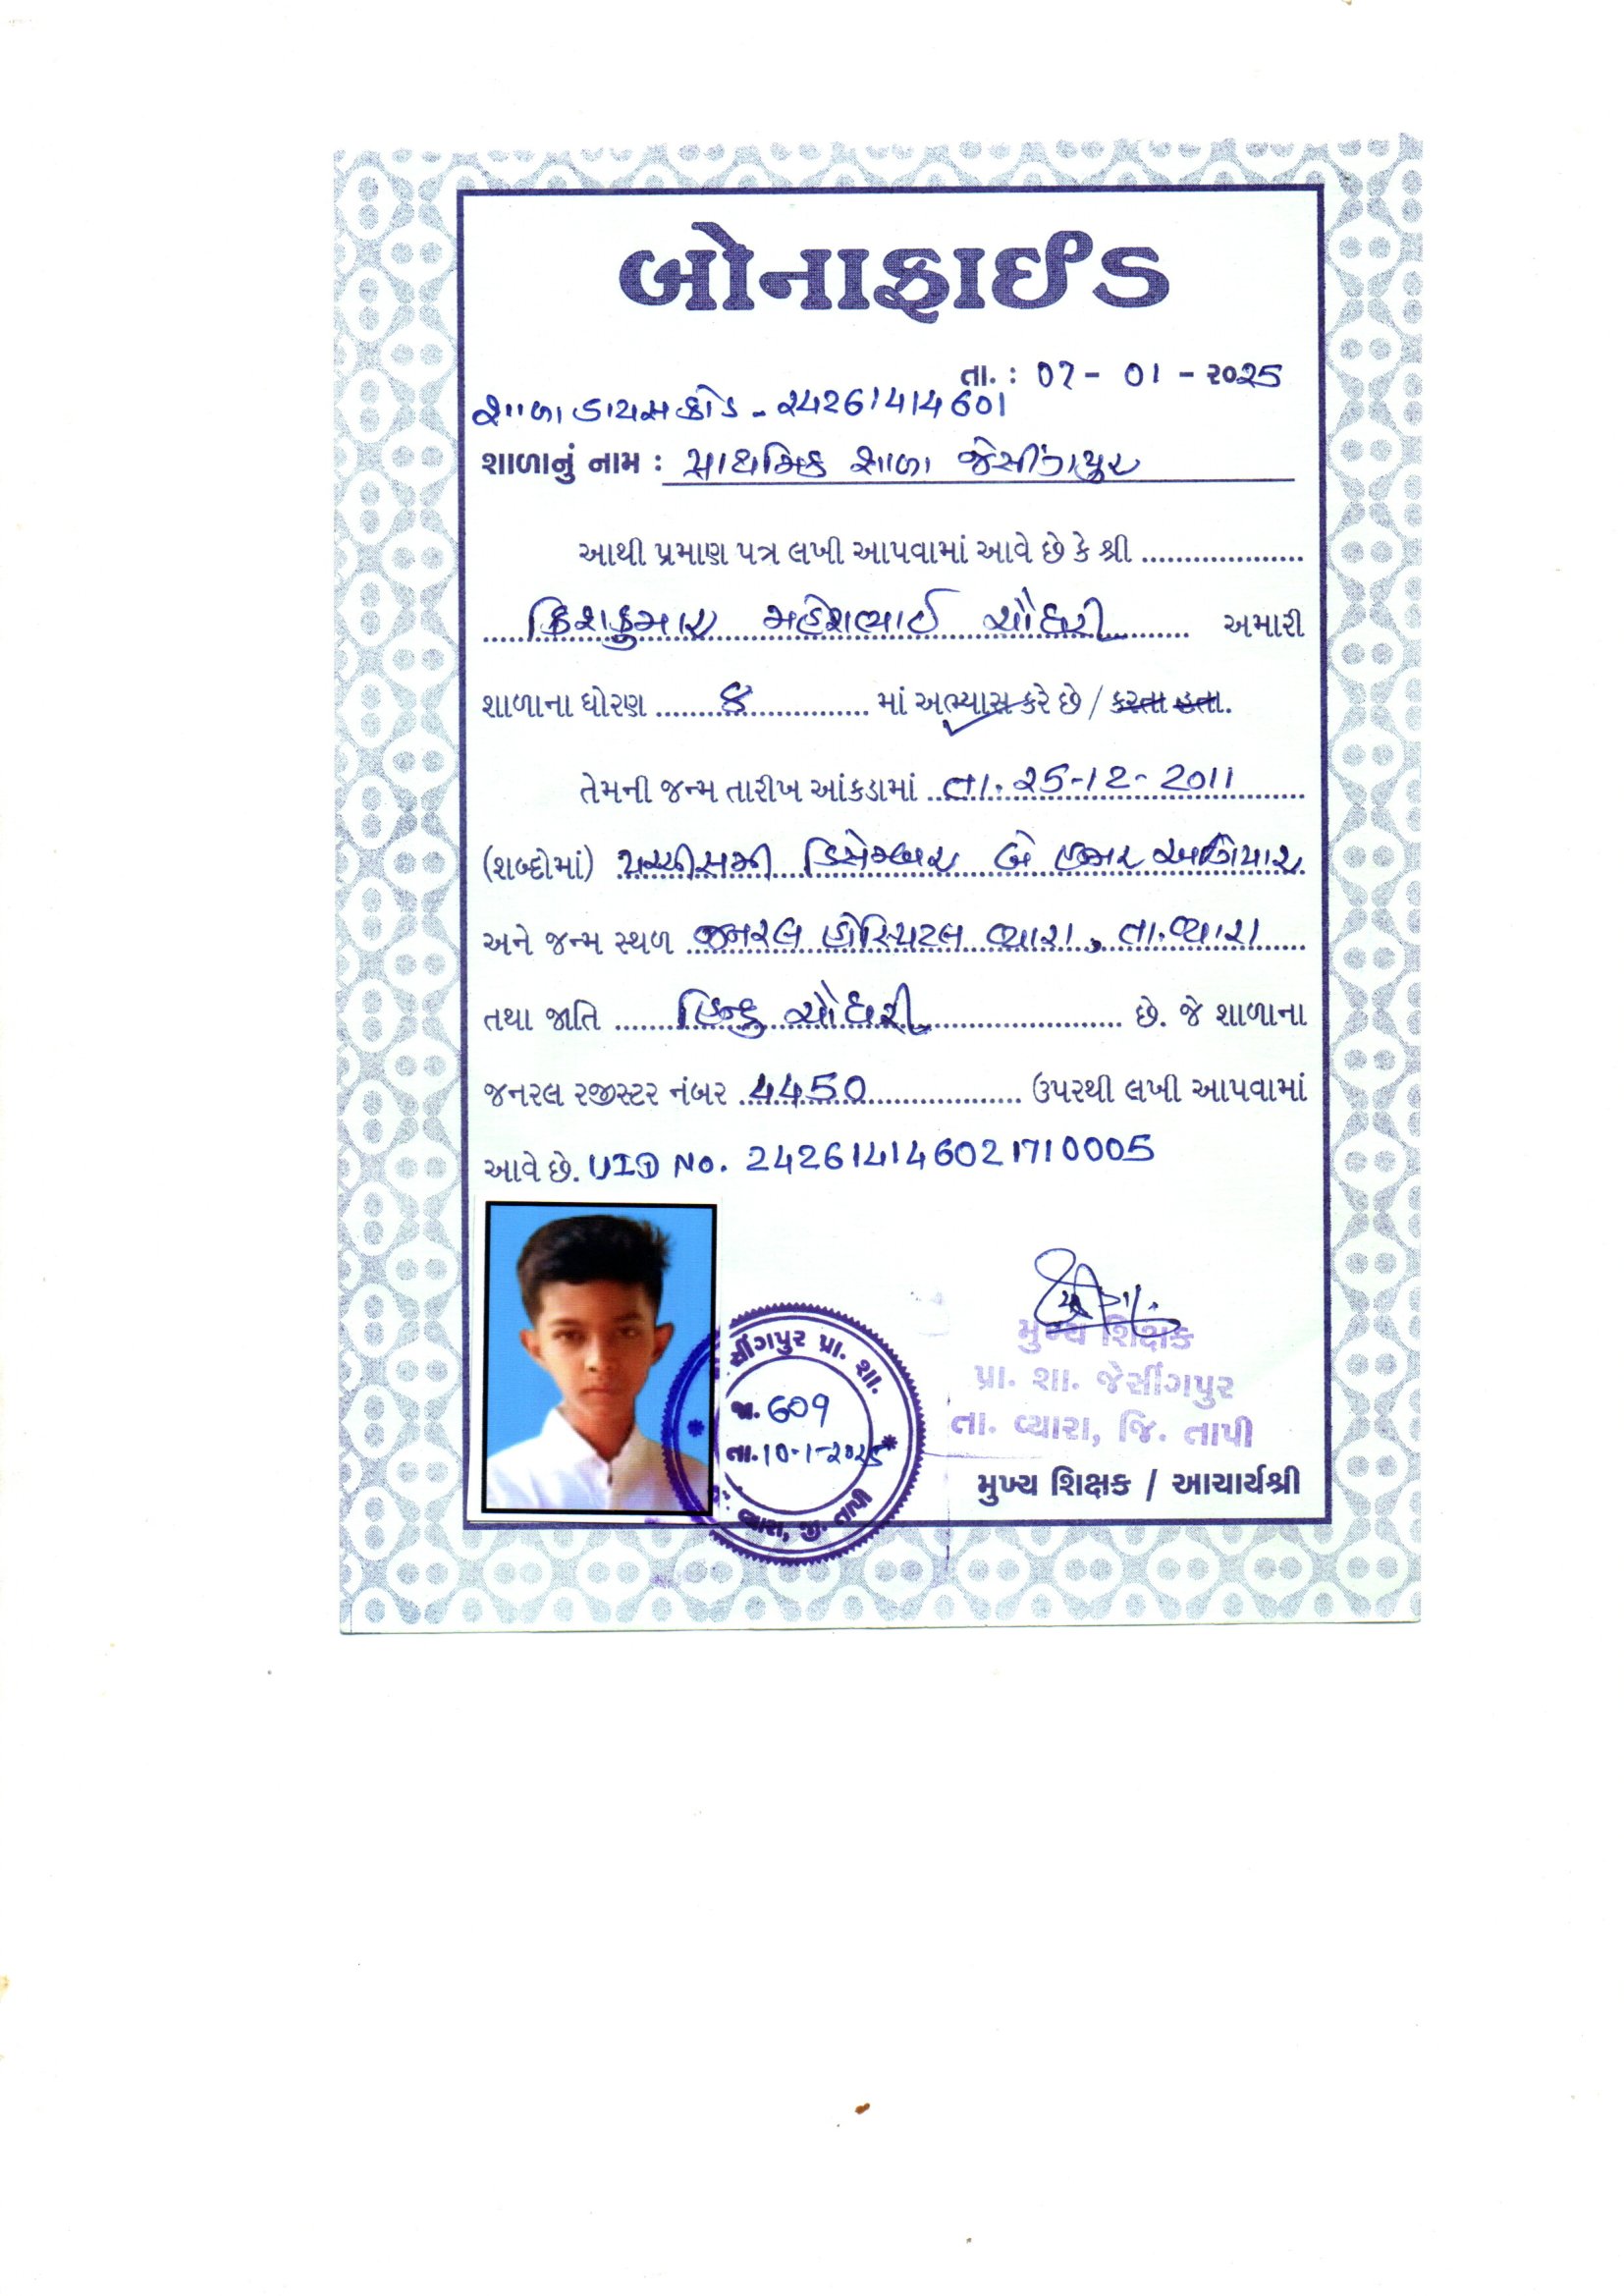 બોનાફાઈડ
તા. : 07 - 01 - ૨૦૨5
શાળા ડાયસ કોડ - ૨4261414601
શાળાનું નામ : પ્રાથમિક શાળા જેસીંગપુર
આથી પ્રમાણ પત્ર લખી આપવામાં આવે છે કે શ્રી
ક્રિશકુમાર મહેશભાઈ ચૌધરી અમારી
શાળાના ધોરણ ૮ માં અભ્યાસ કરે છે / કરતા હતા.
તેમની જન્મ તારીખ આંકડામાં તા. ૨5-12-2011
(શબ્દોમાં) પચ્ચીસમી ડિસેમ્બર બે હજાર અગિયાર
અને જન્મ સ્થળ જનરલ હોસ્પિટલ વ્યારા, તા. વ્યારા
તથા જાતિ હિન્દુ ચૌધરી છે. જે શાળાના
જનરલ રજીસ્ટર નંબર 4450 ઉપરથી લખી આપવામાં
આવે છે. UID No. 242614146021710005
સીંગપુર પ્રા. શા.
જા. 609
તા. 10-1-૨૦૨5
વ્યારા, જી. તાપી
મુખ્ય શિક્ષક
પ્રા. શા. જેસીંગપુર
તા. વ્યારા, જિ. તાપી
મુખ્ય શિક્ષક / આચાર્યશ્રી